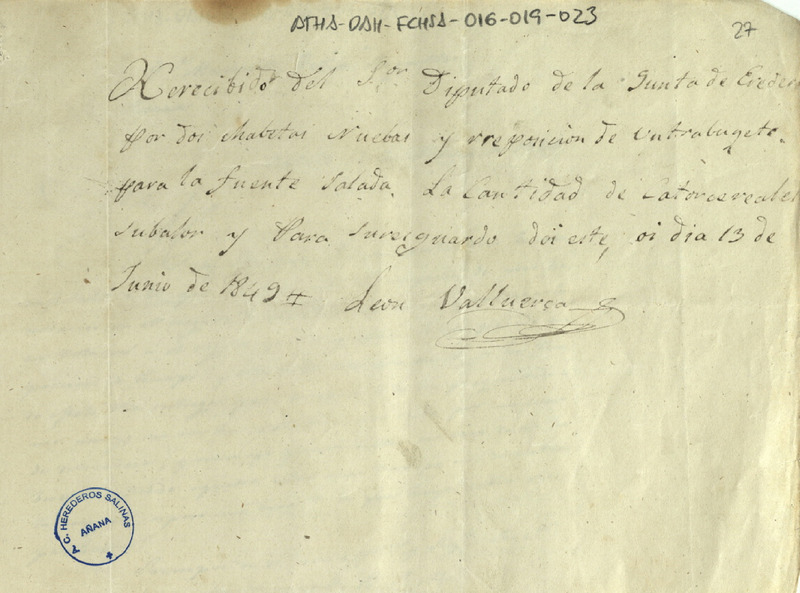 ATHA-DAH-FCHSA-016-019-023
27
Herecibido del Sor Diputado de la Junta de Eredero
por dos chabetas Nuebas y rreposicion de untrabugete
para la fuente salada. La Cantidad de Catorcereales
subalor y Para suresguardo doi este, oi dia 13 de
Junio de 1849 Leon Valluerca
C. HEREDEROS SALINAS
AÑANA